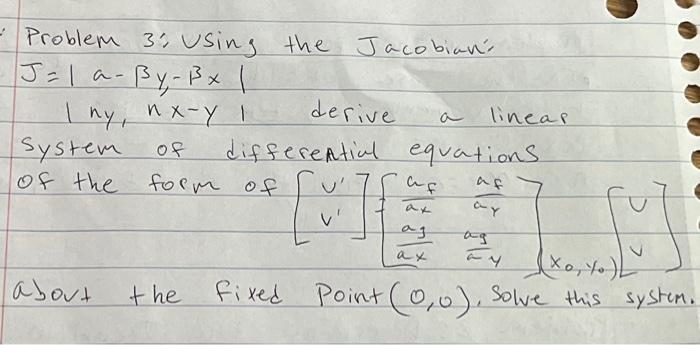 Problem 3: Using the Jacobian:
J = | a - βy, - βx |
| ny, nx - y | derive a linear
system of differential equations
of the form of [u' v'] = [af/ax af/ay ag/ax ag/ay] (x0, y0) [u v]
about the fixed Point (0,0). Solve this system.